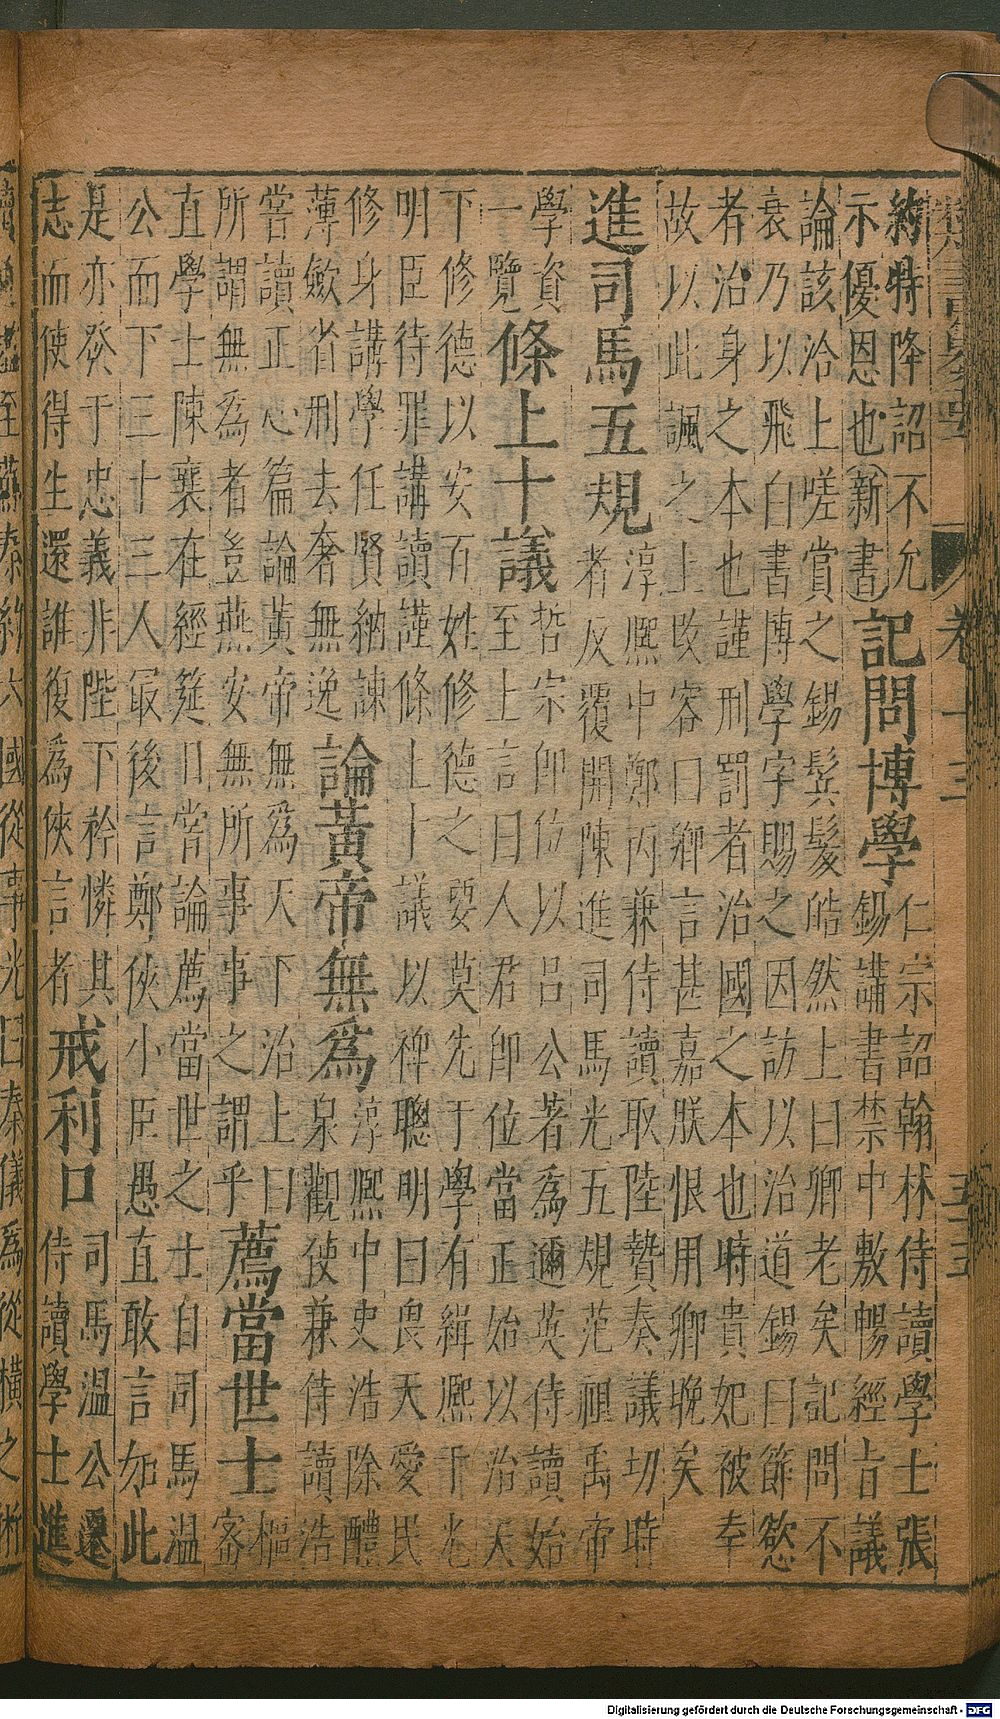 卷十三
約特降詔不允
示優恩也(新書)
記問博學
仁宗詔翰林侍讀學士張
錫講書禁中敷暢經旨議
論該洽上嗟賞之錫鬂髮皓然上曰卿老矣記問不
衰乃以飛白書博學字賜之因訪以治道錫曰節慾
者治身之本也謹刑罰者治國之本也時貴妃被幸
故以此諷之上改容曰卿言甚嘉朕恨用卿晚矣
進司馬五規
淳熈中鄭丙兼侍讀取陸贄奏議切時
者反覆開陳進司馬光五規范祖禹帝
學資
一覽
條上十議
哲宗即位以呂公著為邇英侍讀始
至上言曰人君即位當正始以治天
下修德以安百姓修德之要莫先于學有緝熈于光
明臣待罪講讀謹條上十議以裨聰明曰畏天愛民
修身講學任賢納諫
薄斂省刑去奢無逸
論黃帝無為
淳熈中史浩除醴
泉觀使兼侍讀浩
嘗讀正心篇論黃帝無為天下治上曰
所謂無為者豈燕安無所事事之謂乎
薦當世士
樞
密
直學士陳襄在經筵日嘗論薦當世之士自司馬溫
公而下三十三人最後言鄭俠小臣愚直敢言如此
是亦發于忠義非陛下矜憐其
志而使得生還誰復為俠言者
戒利口
司馬溫公遷
侍讀學士進
至蘇秦約六國從事光曰秦儀為從橫之術
Digitalisierung gefördert durch die Deutsche Forschungsgemeinschaft - DFG